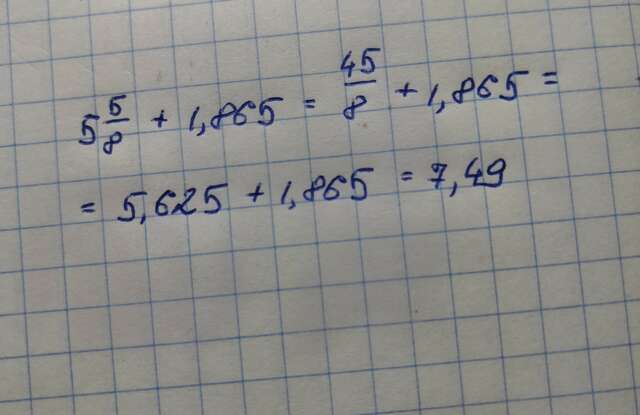 5 5/8 + 1,865 = 45/8 + 1,865 =
= 5,625 + 1,865 = 7,49